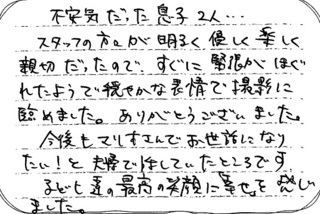 不安気だった息子2人…
スタッフの方が明るく優しく楽しく
親切だったので、すぐに緊張がほぐ
れたようで穏やかな表情で撮影に
臨めました。ありがとうございました。
今後もマリオさんでお世話になり
たい！と夫婦で話していたところです
子ども達の最高の笑顔に幸せを感じ
ました。